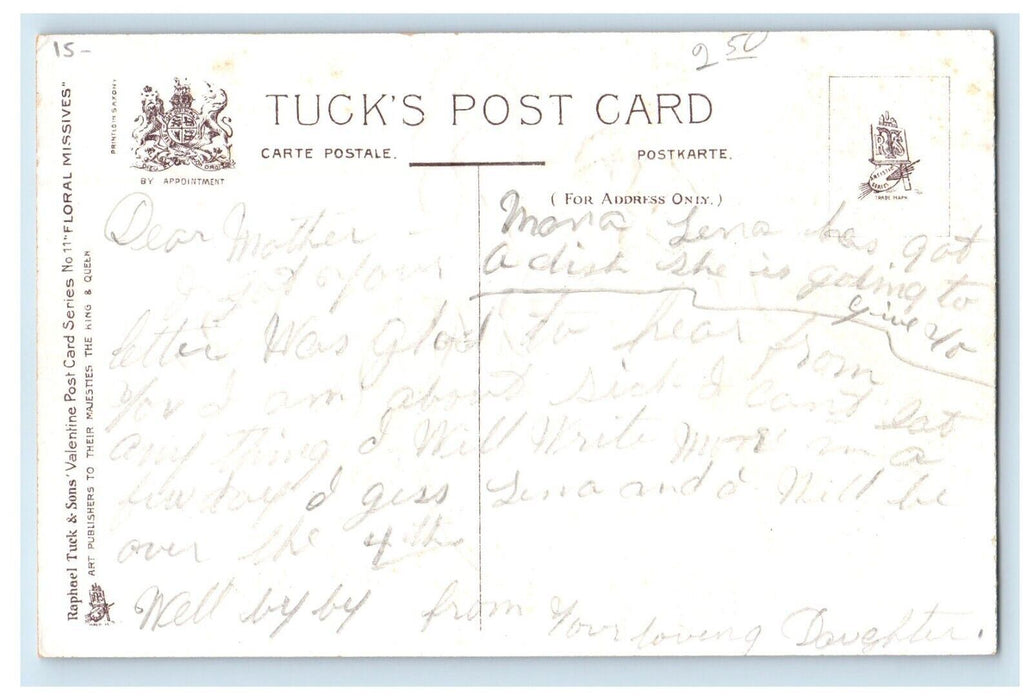 15-
2 50
TUCK'S POST CARD
CARTE POSTALE.
POSTKARTE.
(FOR ADDRESS ONLY.)
BY APPOINTMENT
PRINTED IN SAXONY
Raphael Tuck & Sons' Valentine Post Card Series No 11 "FLORAL MISSIVES"
ART PUBLISHERS TO THEIR MAJESTIES THE KING & QUEEN
ARTISTIC SERIES
TRADE MARK
Mama Lena has got
a dish she is going to
give yo
Dear Mother -
I got your
letter Was glad to hear from
you I am about sick I cant eat
any thing I Will Write more in a
few day I gess Lena and I Will be
over the 4th
Well by by from Your loving Daughter.